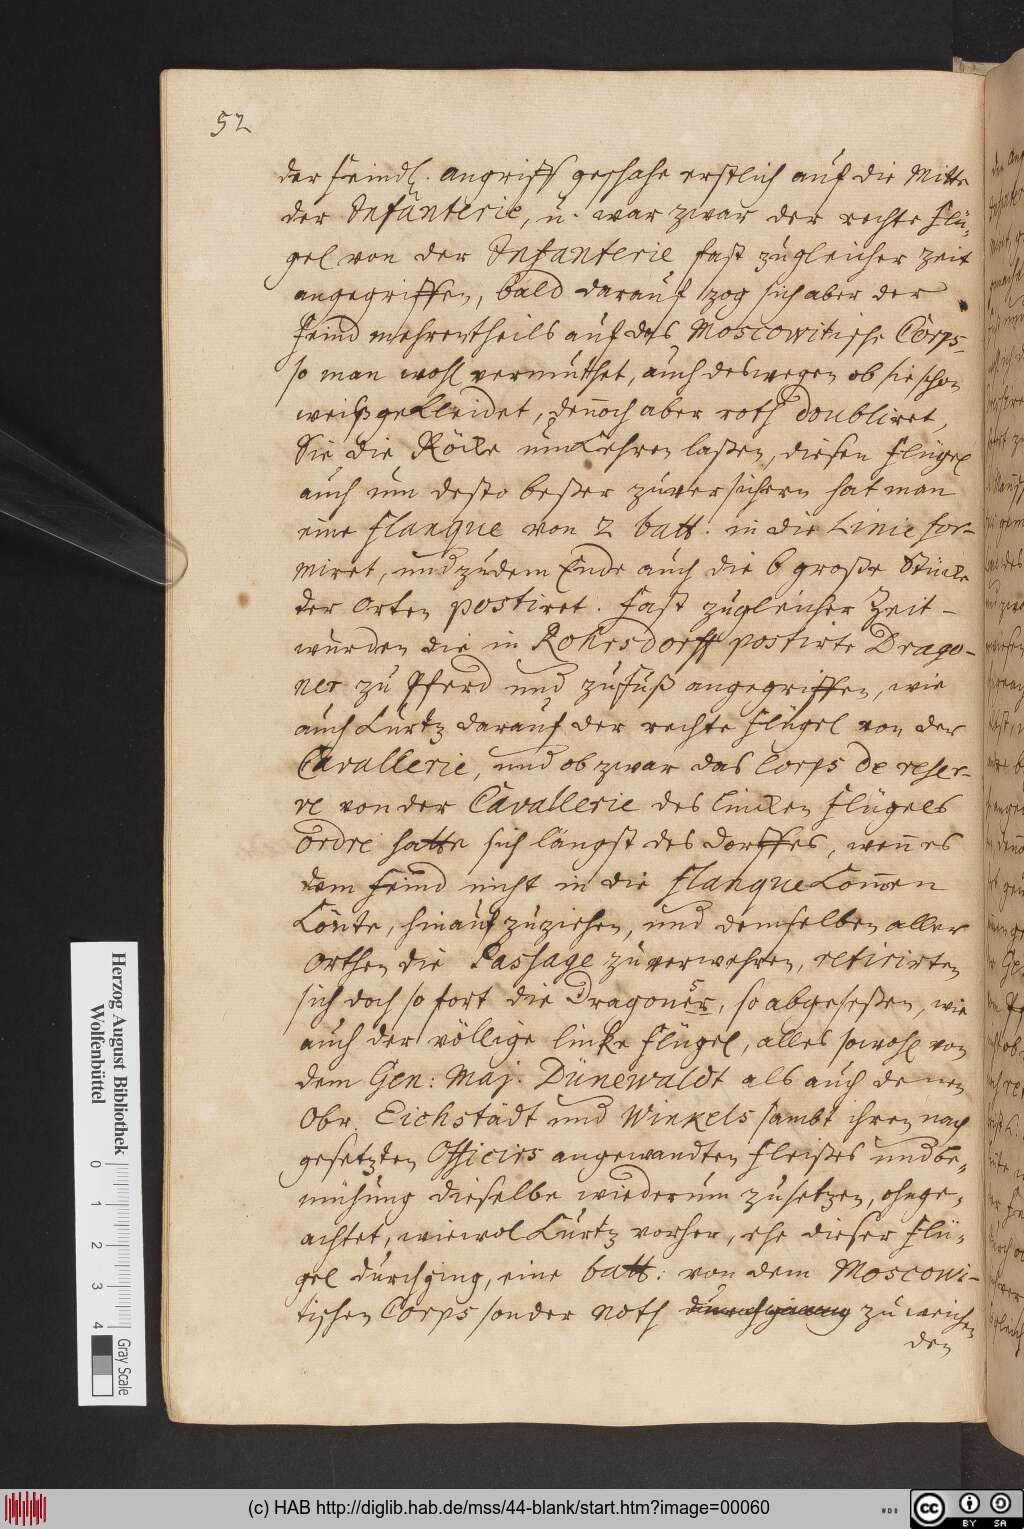 52
der feindl. angriff geschahe erstlich auf die Mitte
der Infanterie, u. war zwar der rechte Flü-
gel von der Infanterie fast zugleicher Zeit
angegriffen, bald darauf zog sich aber der
Feind mehrentheils auf das Moscowitische Corps,
so man wohl vermuthet, auch deswegen ob sie schon
weiß gekleidet, deñoch aber roth doubliret,
Sie die Röcke umkehren laßen, diesen Flügel
auch um desto beßer zuversichern hat man
eine Flanque von 2 batt. in die Linie for-
miret, und zu dem Ende auch die 6 große Stücke
der Orten postiret. Fast zugleicher Zeit
wurden die in Rohrsdorff postirte Drago-
ner zu Pferd und zufuß angegriffen, wie
auch kurtz darauf der rechte Flügel von der
Cavallerie, und ob zwar das Corps de reser-
ve von der Cavallerie des lincken Flügels
ordre hatte sich längst des Dorffes, weñ es
dem Feind nicht in die Flanque kom̄en
könte, hinauf zuziehen, und demselben aller
Orthen die Passage zuverwehren, retirirten
sich doch so fort die Dragoner, so abgeseßen, wie
auch der völlige linke Flügel, alles sowohl von
dem Gen: Maj. Dünewaldt als auch denen
Obr. Eichstädt und Winkels sambt ihren nach
gesetzten Officirs angewandten Fleißes und be-
mühung dieselbe wiederum zusetzen, ohnge-
achtet, wiewol kurtz vorher, ehe dieser Flü-
gel durchging, eine batt: von dem Moscowi-
tischen Corps sonder Noth durchging zu weichen
den
Herzog August Bibliothek
Wolfenbüttel
0 1 2 3 4
Gray Scale
(c) HAB http://diglib.hab.de/mss/44-blank/start.htm?image=00060
WDB
cc BY SA